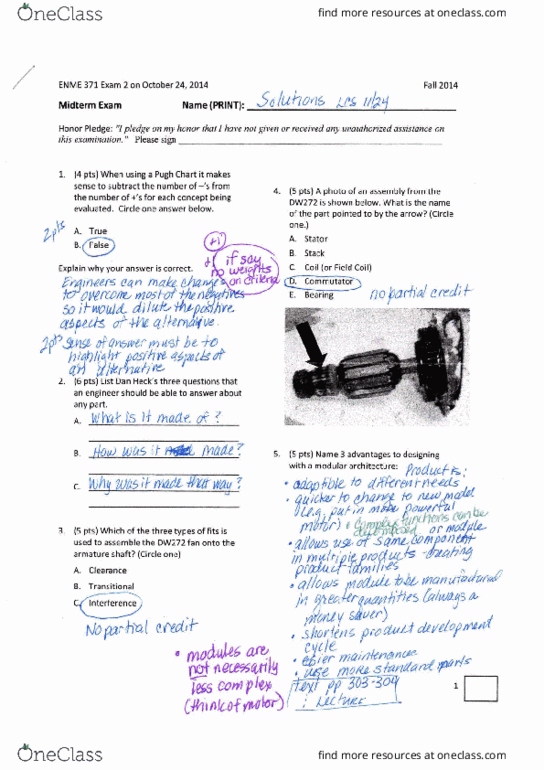 OneClass
find more resources at oneclass.com
ENME 371 Exam 2 on October 24, 2014
Fall 2014
Midterm Exam
Name (PRINT): Solutions LCS 11/24
Honor Pledge: "I pledge on my honor that I have not given or received any unauthorized assistance on
this examination." Please sign
1. (4 pts) When using a Pugh Chart it makes
sense to subtract the number of –'s from
the number of +'s for each concept being
evaluated. Circle one answer below.
2pts
A. True
B. False
+1
if say
no weights
on criteria
Explain why your answer is correct.
Engineers can make changes
to overcome most of the negatives
so it would dilute the positive
aspects of the alternative.
2pts Sense of answer must be to
highlight positive aspects of
an alternative
2. (6 pts) List Dan Heck's three questions that
an engineer should be able to answer about
any part.
A. What is it made of?
B. How was it made?
C. Why was it made that way?
3. (5 pts) Which of the three types of fits is
used to assemble the DW272 fan onto the
armature shaft? (Circle one)
A. Clearance
B. Transitional
C. Interference
No partial credit
4. (5 pts) A photo of an assembly from the
DW272 is shown below. What is the name
of the part pointed to by the arrow? (Circle
one.)
A. Stator
B. Stack
C. Coil (or Field Coil)
D. Commutator
E. Bearing
no partial credit
5. (5 pts) Name 3 advantages to designing
with a modular architecture: Product is:
• adaptible to different needs
• quicker to change to new model
(e.g., put in more powerful
motor) • complex functions can be
or module
• allows use of same component
in multiple products - creating
product families
• allows module to be manufactured
in greater quantities (always a
money saver)
• shortens product development
cycle
• easier maintenance
• use more standard parts
text pp 303-304
; Lecture
• modules are
not necessarily
less complex
(think of motor)
1
OneClass
find more resources at oneclass.com